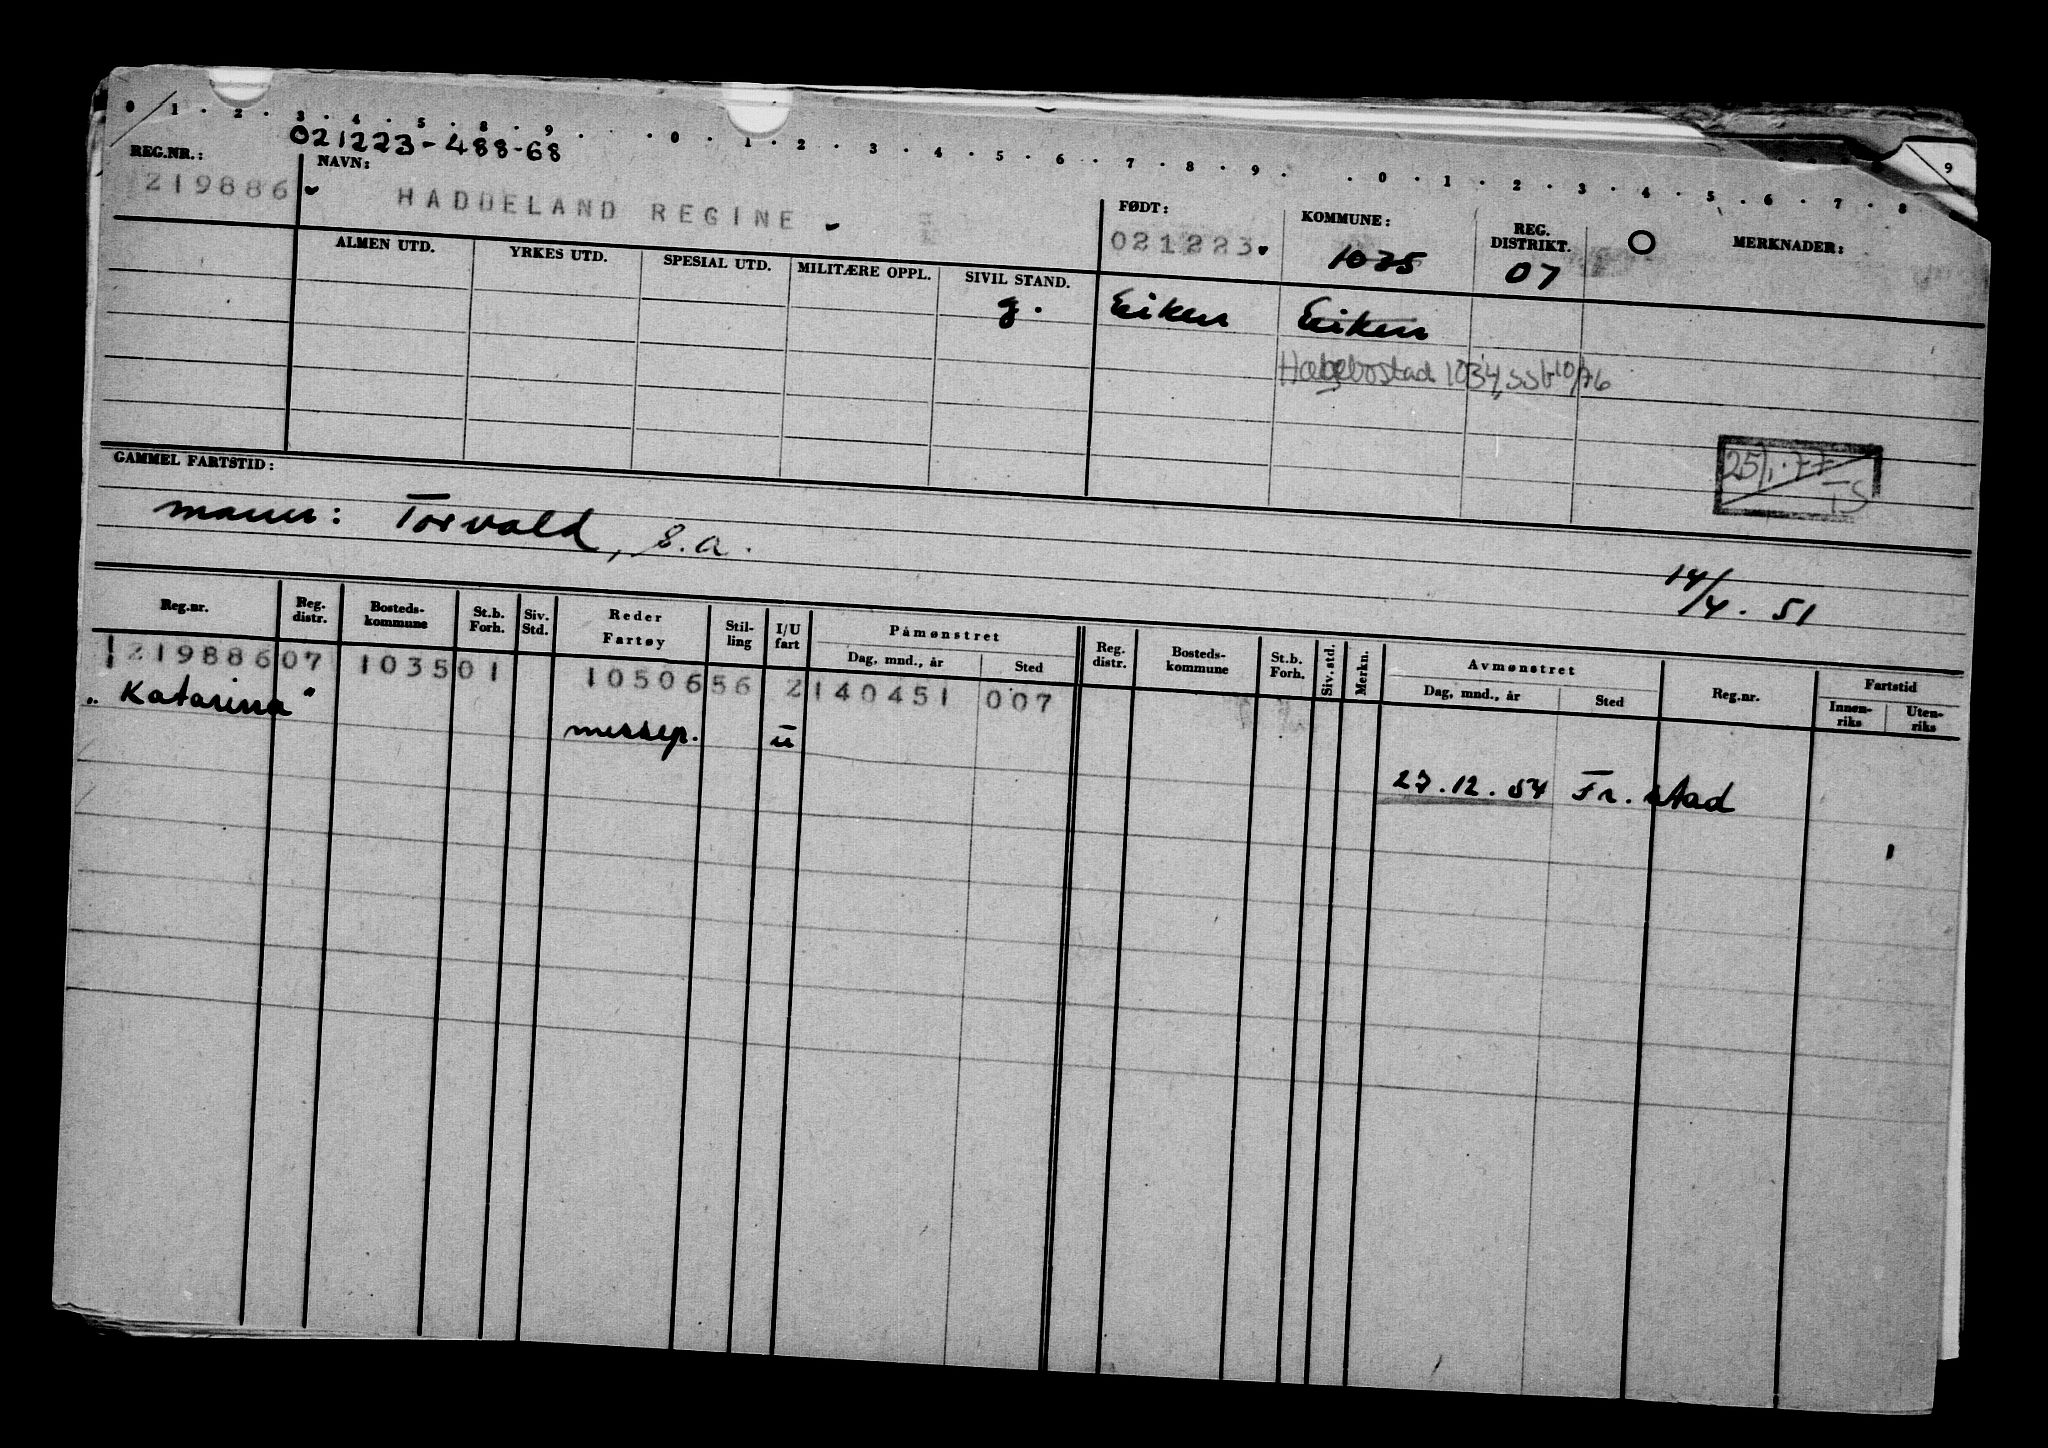 0 1 · 2 · 3 · 4 · 5 · 8 · 9 · · · 0 · 1 · 2 · 3 · 4 · 5 · 6 · 7 · 8 · 9 · · 0 · 1 · 2 · 3 · 4 · 5 · 6 · 7 · 8 9
021223-488-68
REG.NR.: NAVN: FØDT: KOMMUNE: REG. DISTRIKT. O MERKNADER:
219886 HADDELAND REGINE 021223 1035 07
ALMEN UTD. YRKES UTD. SPESIAL UTD. MILITÆRE OPPL. SIVIL STAND.
g. Eiken Eiken
Hægebostad 1034, SSB 10/76
25/1-77
TS
GAMMEL FARTSTID:
mann: Torvald, s.a.
14/4. 51
Reg.nr. Reg. distr. Bosteds-kommune St.b. Forh. Siv. Std. Reder Fartøy Stil-ling I/U fart Påmønstret Dag, mnd., år Sted Reg. distr. Bosteds-kommune St.b. Forh. Siv. std. Merkn. Avmønstret Dag, mnd., år Sted Reg.nr. Fartstid Innen-riks Uten-riks
121988607 103501 1050656 2140451 007
„Katarina" messep. u
27.12.54 Fr.stad
1